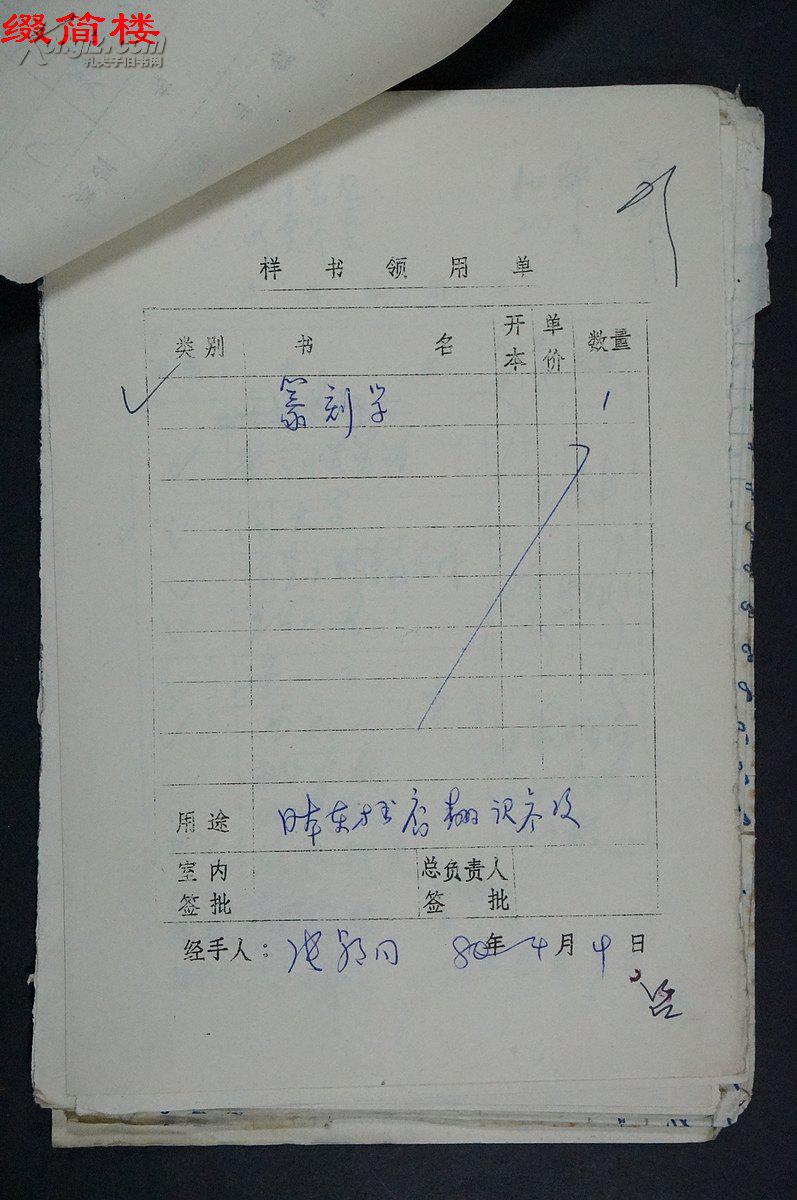 缀简楼
Kongfz.com
孔夫子旧书网
样书领用单
类别 书名 开本 单价 数量
篆刻学 1
用途 日本东方书店翻译参考
室内签批 总负责人签批
经手人: 80年4月4日